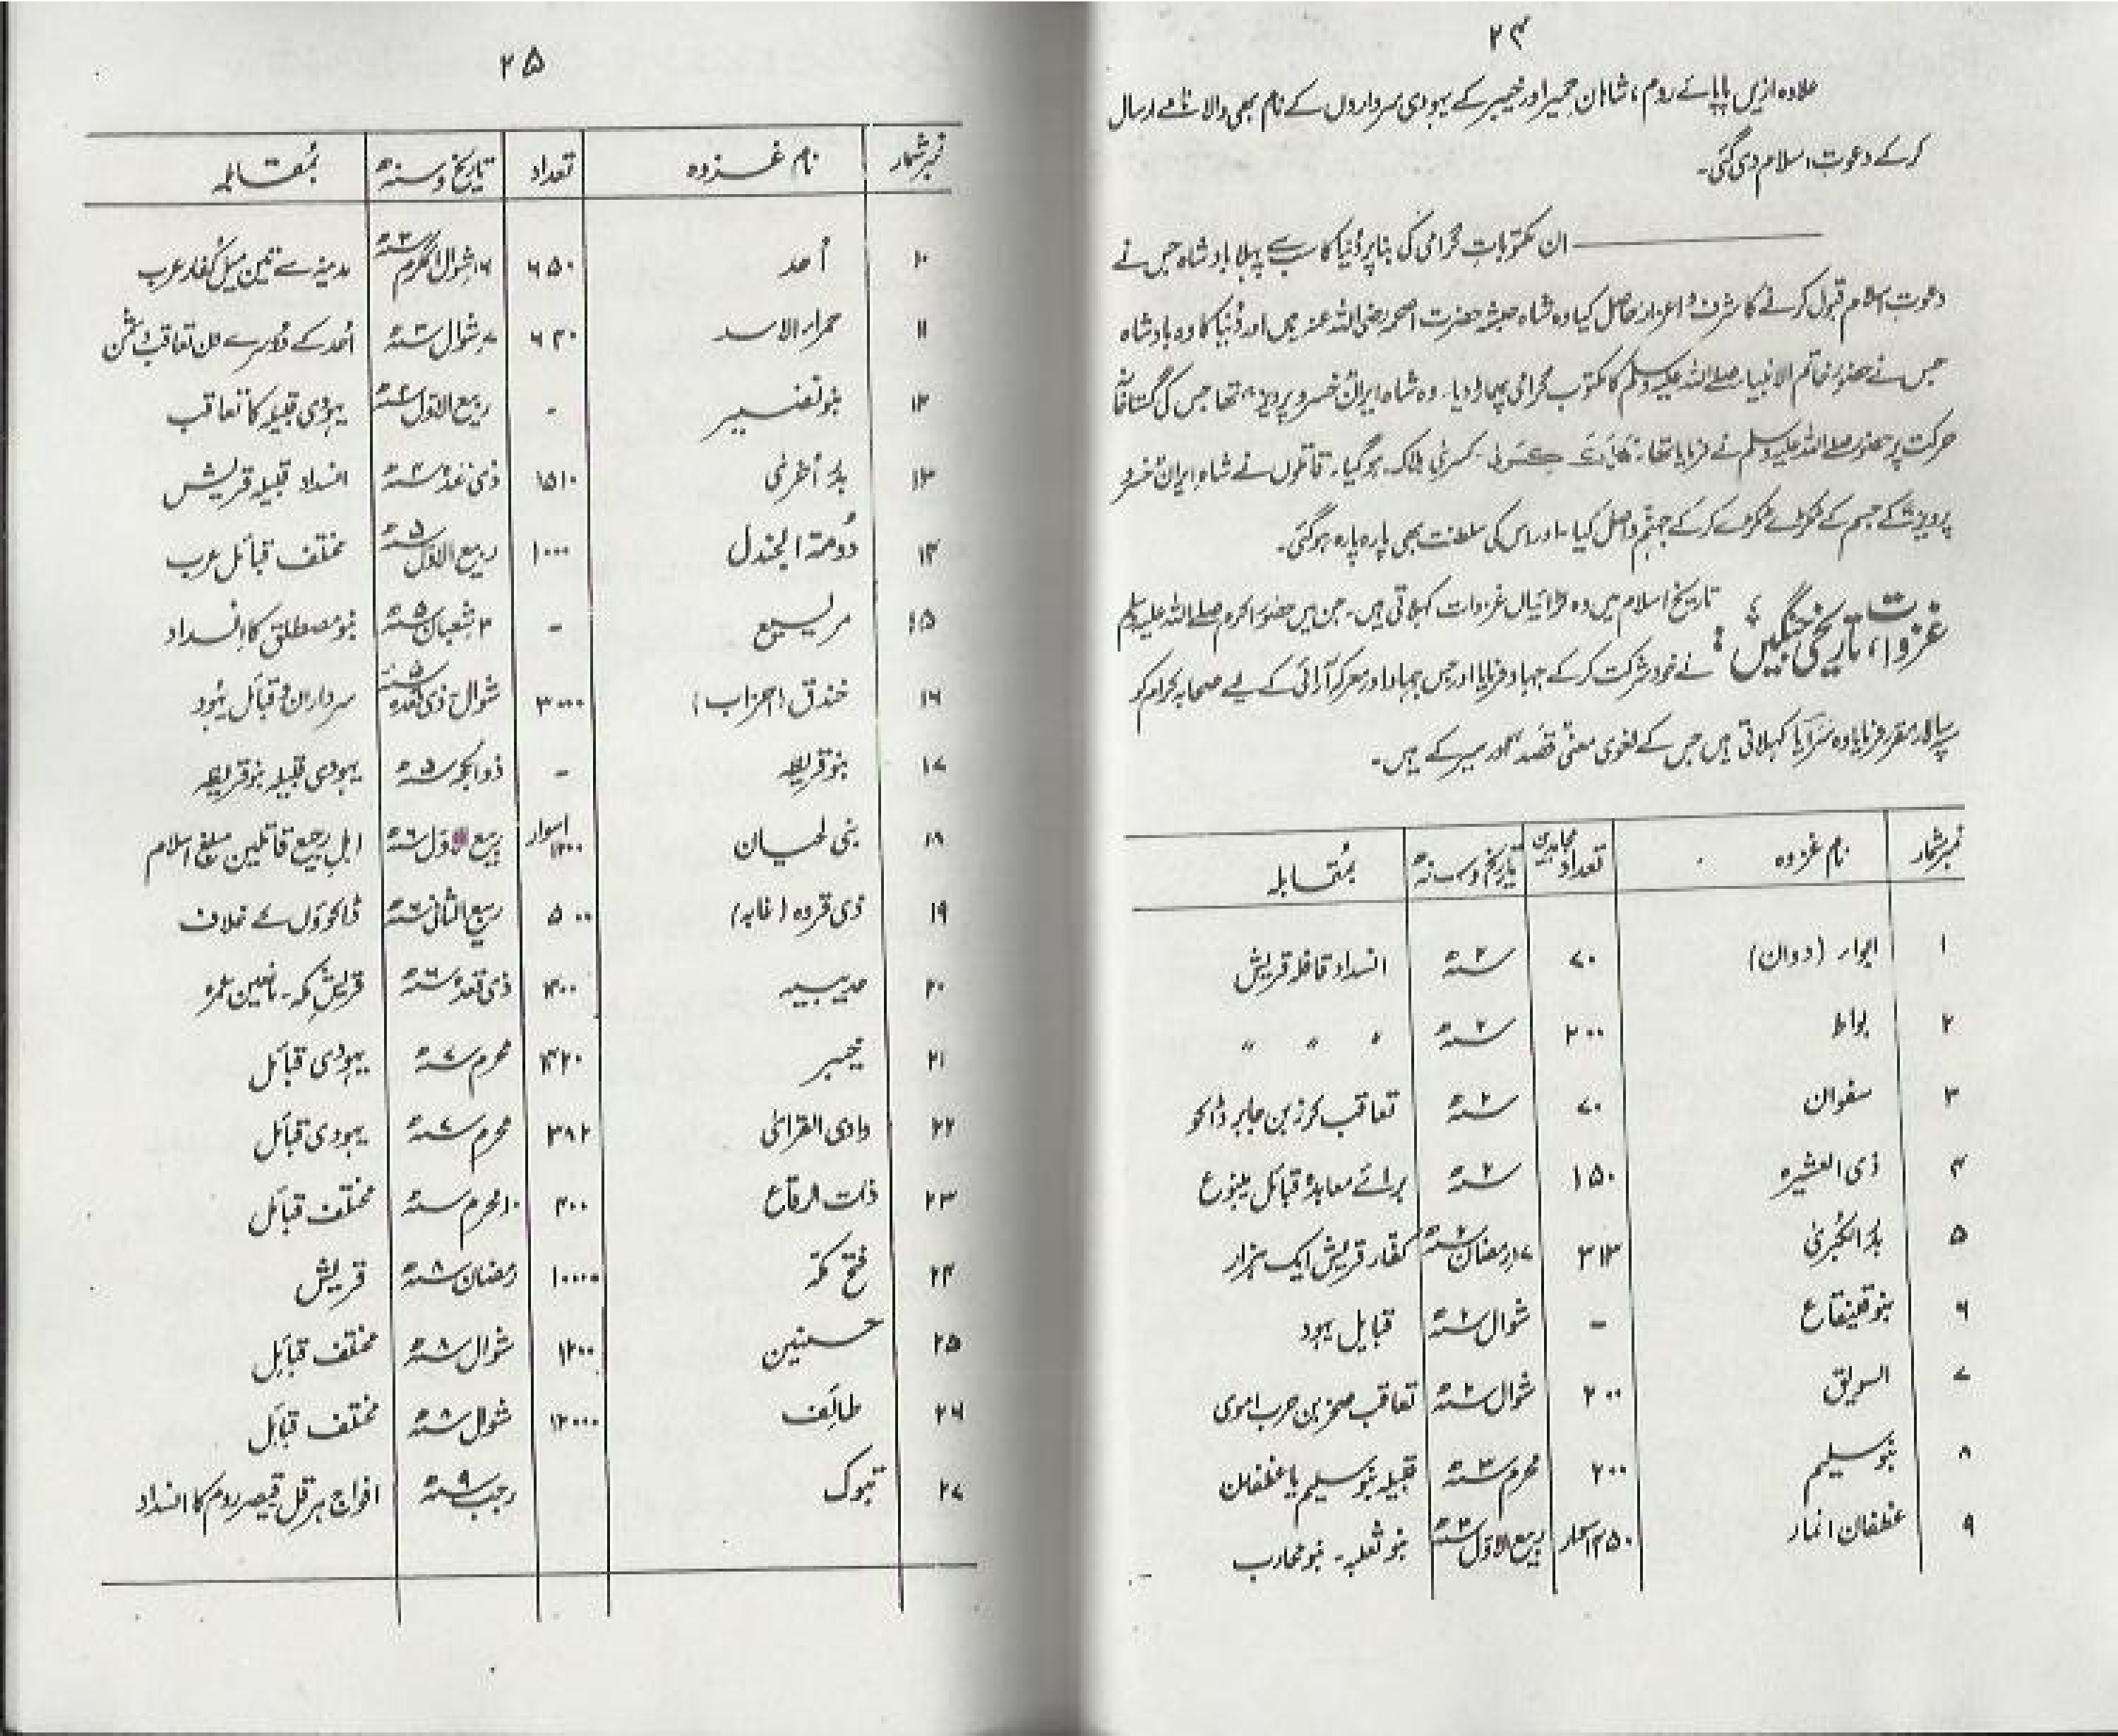 ۲۴
علاوہ ازیں پاپائے روم، شاہان حمیر اور خیبر کے یہودی سرداروں کے نام بھی والا نامے ارسال
کر کے دعوت اسلام دی گئی۔
ان مکتوبات گرامی کی بنا پر دُنیا کا سب سے پہلا بادشاہ جس نے
دعوت اسلام قبول کرنے کا شرف و اعزاز حاصل کیا وہ شاہ حبشہ حضرت اصحمہ رضی اللہ عنہ ہیں اور دُنیا کا وہ بادشاہ
جس نے حضور خاتم الانبیاء صلے اللہ علیہ وسلم کا مکتوب گرامی پھاڑ دیا۔ وہ شاہ ایران خسرو پرویز تھا جس کی گستاخانہ
حرکت پر حضور صلے اللہ علیہ وسلم نے فرمایا تھا۔ کسریٰ ہلاک ہو گیا۔ قاتلوں نے شاہ ایران خسرو
پرویز کے جسم کے ٹکڑے ٹکڑے کر کے جہنم واصل کیا۔ اور اس کی سلطنت بھی پارہ پارہ ہو گئی۔
غزوات، تاریخی جنگیں: تاریخ اسلام میں وہ لڑائیاں غزوات کہلاتی ہیں۔ جن میں حضور اکرم صلے اللہ علیہ وسلم
نے خود شرکت کر کے جہاد فرمایا اور جس جہاد اور معرکہ آرائی کے لیے صحابہ کرام کو
سپہ سالار مقرر فرمایا وہ سرایا کہلاتی ہیں جس کے لغوی معنی قصد اور سیر کے ہیں۔
نمبر شمار نام غزوہ تعداد مجاہدین تاریخ و سنہ بمُقابلہ
۱ ابوار (ودان) ۷۰ ۲ھ انسداد قافلہ قریش
۲ بواط ۲۰۰ ۲ھ " " "
۳ سفوان ۷۰ ۲ھ تعاقب کرز بن جابر ڈاکو
۴ ذی العشیرہ ۱۵۰ ۲ھ برائے معاہدہ قبائل ینبوع
۵ بدر الکبریٰ ۳۱۳ ۱۷ رمضان ۲ھ کفار قریش ایک ہزار
۶ بنو قینقاع - شوال ۲ھ قبایل یہود
۷ السویق ۲۰۰ شوال ۲ھ تعاقب صخر بن حرب اموی
۸ بنو سلیم ۲۰۰ محرم ۳ھ قبیلہ بنو سلیم یا غطفان
۹ غطفان انمار ۴۵۰ سوار ربیع الاول ۳ھ بنو ثعلبہ۔ بنو محارب
۲۵
نمبر شمار نام غزوہ تعداد تاریخ و سنہ بمُقابلہ
۱۰ اُحد ۶۵۰ ۶ شوال المکرم ۳ھ مدینہ سے تین میل کفار عرب
۱۱ حمرار الاسد ۶۳۰ شوال ۳ھ اُحد کے دُوسرے دن تعاقب دشمن
۱۲ بنو نضیر - ربیع الاول ۴ھ یہودی قبیلہ کا تعاقب
۱۳ بدر اُخریٰ ۱۵۱۰ ذی قعدہ ۴ھ انسداد قبیلہ قریش
۱۴ دُومۃ الجندل ۱۰۰۰ ربیع الاول ۵ھ مختلف قبائل عرب
۱۵ مریسیع - ۲ شعبان ۵ھ بنو مصطلق کا انسداد
۱۶ خندق (احزاب) ۳۰۰۰ شوال، ذی قعدہ ۵ھ سرداران قبائل یہُود
۱۷ بنو قریظہ - ذوالحجہ ۵ھ یہودی قبیلہ بنو قریظہ
۱۸ بنی لحیان ۲۰۰ سوار ربیع الاول ۶ھ اہل رجیع قاتلین مبلغ اسلام
۱۹ ذی قروہ (غابہ) ۵۰۰ ربیع الثانی ۶ھ ڈاکوؤں کے خلاف
۲۰ حدیبیہ ۱۴۰۰ ذی قعدہ ۶ھ قریش مکہ۔ مانعین عمرہ
۲۱ خیبر ۱۴۲۰ محرم ۷ھ یہودی قبائل
۲۲ وادی القرائی ۳۸۲ محرم ۷ھ یہودی قبائل
۲۳ ذات الرقاع ۴۰۰ ۱۰ محرم ۷ھ مختلف قبائل
۲۴ فتح مکہ ۱۰۰۰۰ رمضان ۸ھ قریش
۲۵ حسنین ۱۲۰۰۰ شوال ۸ھ مختلف قبائل
۲۶ طائف ۱۲۰۰۰ شوال ۸ھ مختلف قبائل
۲۷ تبوک رجب ۹ھ افواج ہرقل قیصر روم کا انسداد